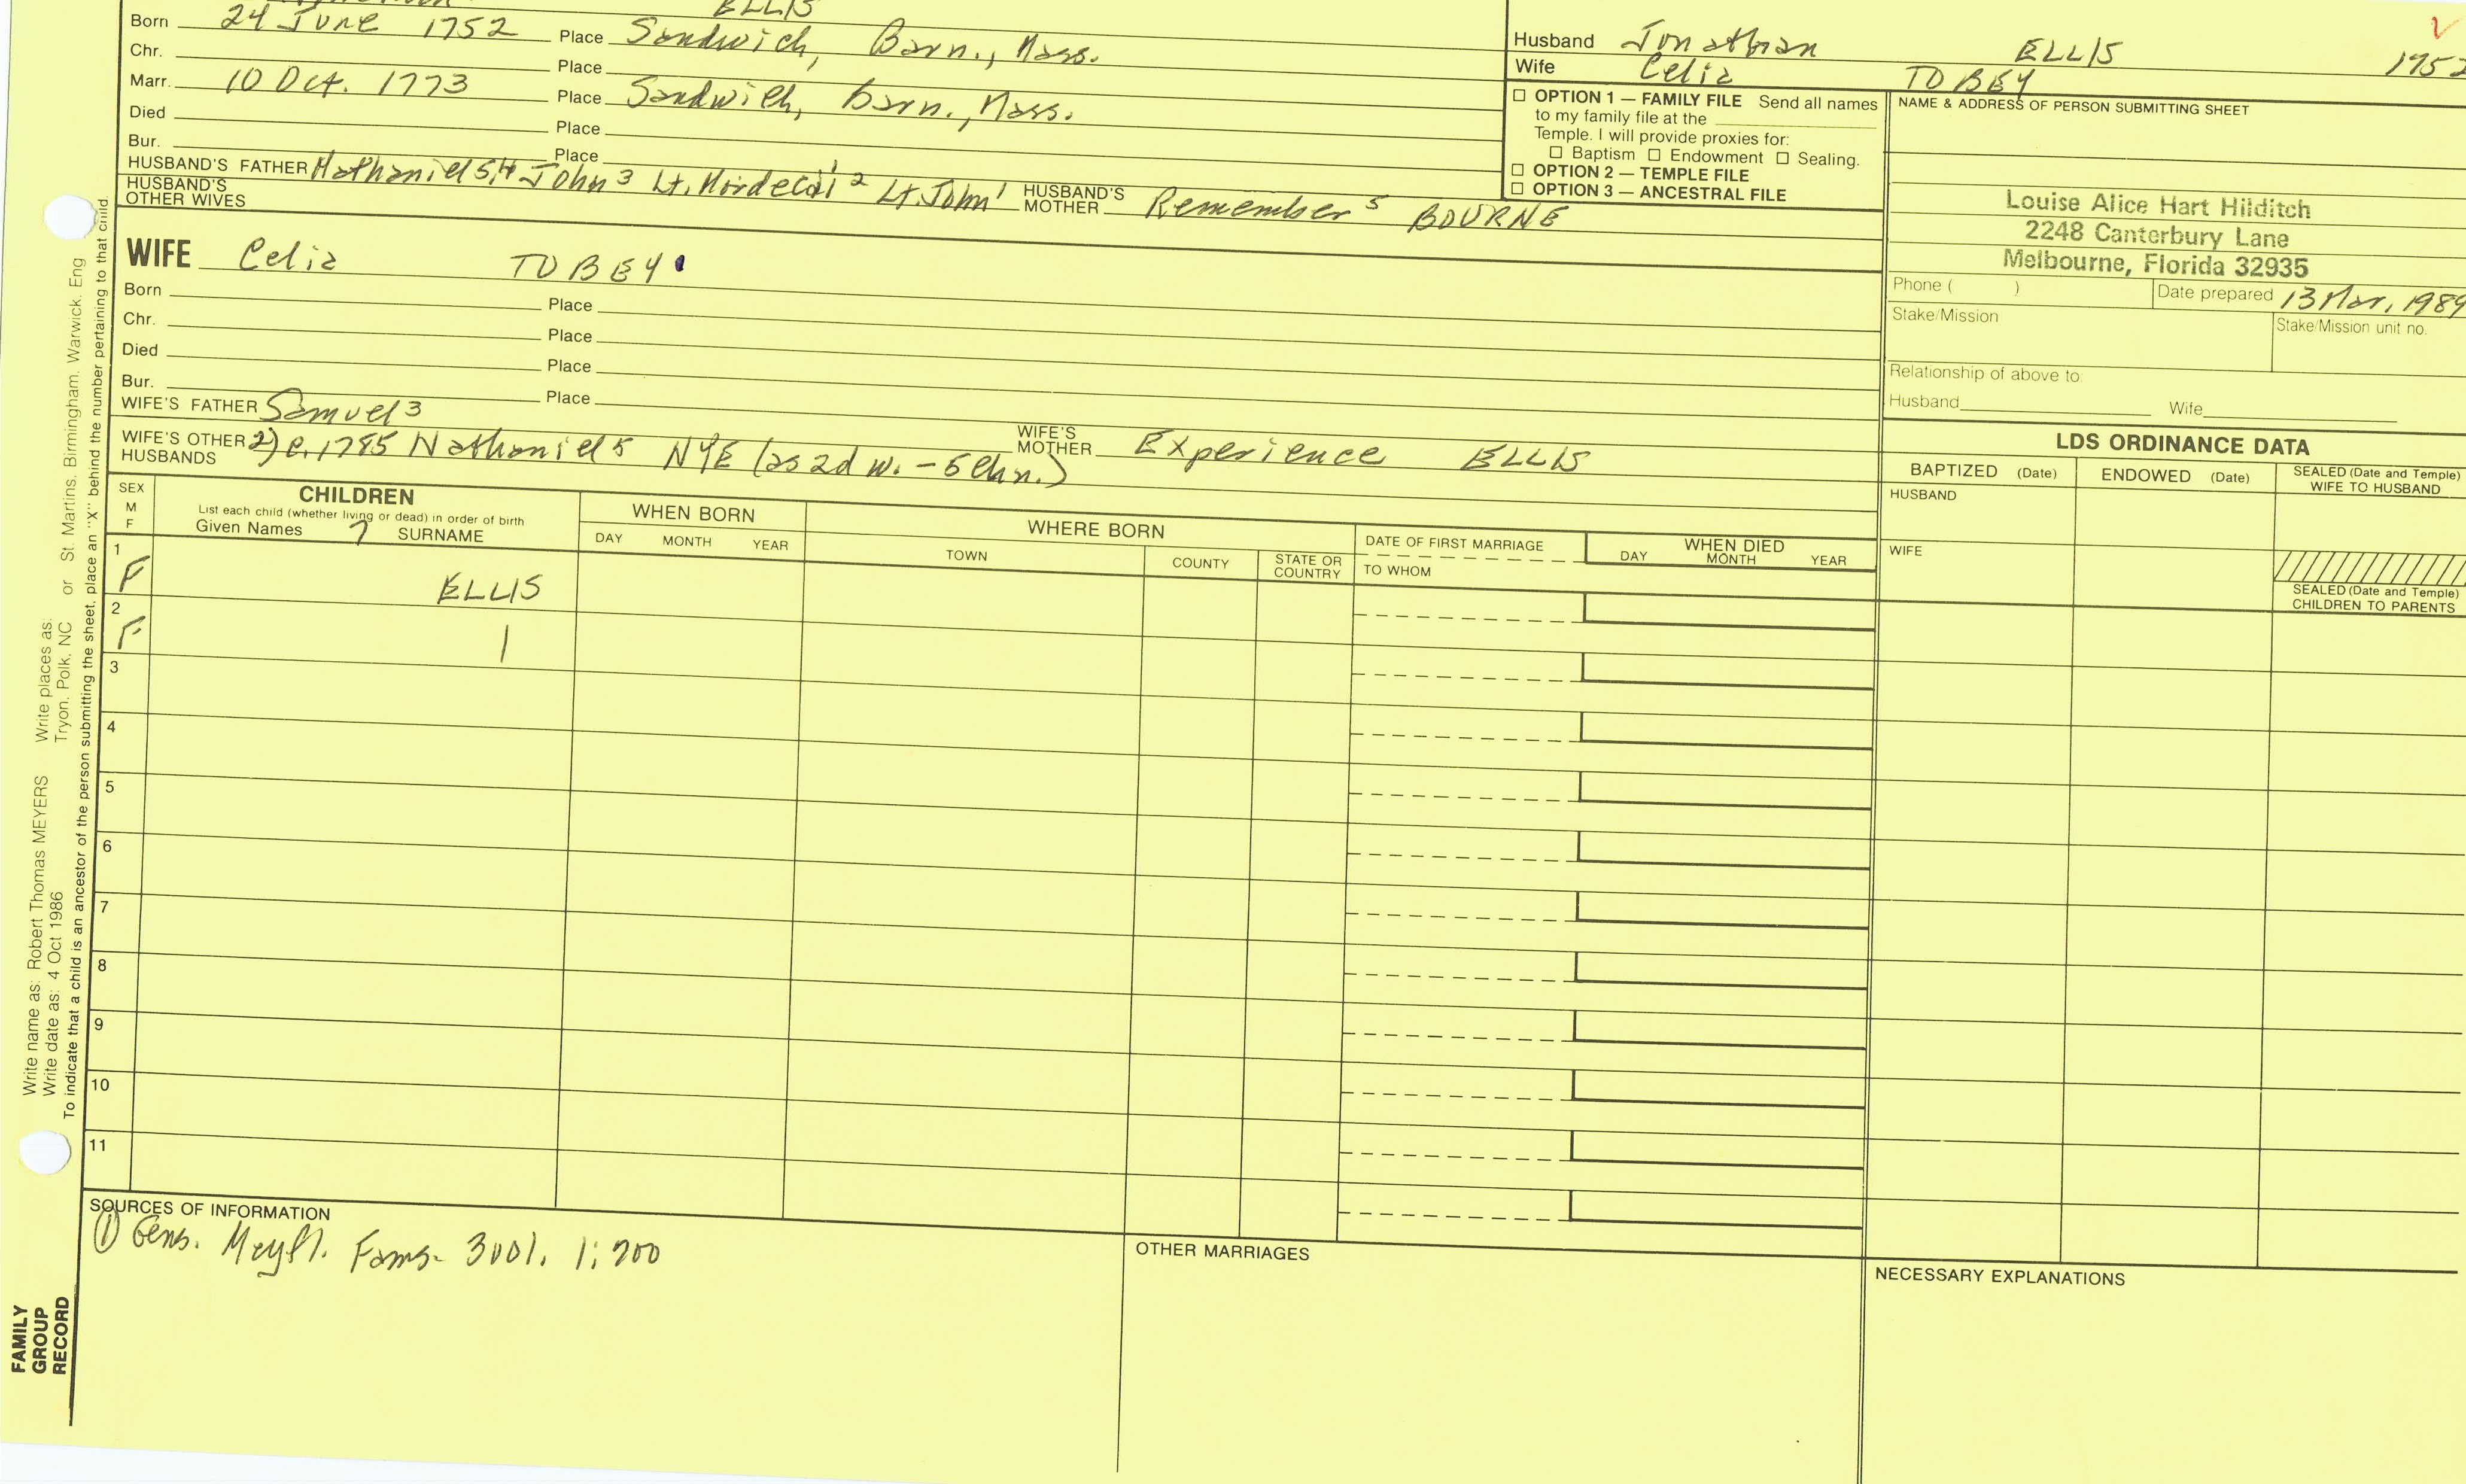 ELLIS
Born 24 June 1752 Place Sandwich, Barn., Mass.
Chr. Place
Marr. 10 Oct. 1773 Place Sandwich, Barn., Mass.
Died Place
Bur. Place
HUSBAND'S FATHER Nathaniel 5,4 John 3 Lt. Mordecai 2 Lt. John 1 HUSBAND'S MOTHER Remember 5 BOURNE
HUSBAND'S OTHER WIVES
Husband Jonathan ELLIS 1752
Wife Celia TOBEY
☐ OPTION 1 — FAMILY FILE Send all names
to my family file at the
Temple. I will provide proxies for:
☐ Baptism ☐ Endowment ☐ Sealing.
☐ OPTION 2 — TEMPLE FILE
☐ OPTION 3 — ANCESTRAL FILE
NAME & ADDRESS OF PERSON SUBMITTING SHEET
Louise Alice Hart Hilditch
2248 Canterbury Lane
Melbourne, Florida 32935
Phone ( ) Date prepared 13 Mar, 1989
Stake/Mission Stake/Mission unit no.
Relationship of above to:
Husband Wife
WIFE Celia TOBEY
Born Place
Chr. Place
Died Place
Bur. Place
WIFE'S FATHER Samuel 3 WIFE'S MOTHER Experience ELLIS
WIFE'S OTHER HUSBANDS 2) c. 1785 Nathaniel 5 NYE (as 2d w. - 5 chn.)
LDS ORDINANCE DATA
BAPTIZED (Date) ENDOWED (Date) SEALED (Date and Temple) WIFE TO HUSBAND
HUSBAND
WIFE
SEALED (Date and Temple) CHILDREN TO PARENTS
SEX M F
CHILDREN
List each child (whether living or dead) in order of birth
Given Names ? SURNAME
WHEN BORN
DAY MONTH YEAR
WHERE BORN
TOWN COUNTY STATE OR COUNTRY
DATE OF FIRST MARRIAGE
TO WHOM
WHEN DIED
DAY MONTH YEAR
1 F ELLIS
2 F |
3
4
5
6
7
8
9
10
11
SOURCES OF INFORMATION
① Gens. Mayfl. Fams. 3 vol. 1:700
OTHER MARRIAGES
NECESSARY EXPLANATIONS
Write name as: Robert Thomas MEYERS Write places as:
Write date as: 4 Oct 1986 Tryon, Polk, NC or St. Martins, Birmingham, Warwick, Eng
To indicate that a child is an ancestor of the person submitting the sheet, place an "X" behind the number pertaining to that child.
FAMILY
GROUP
RECORD